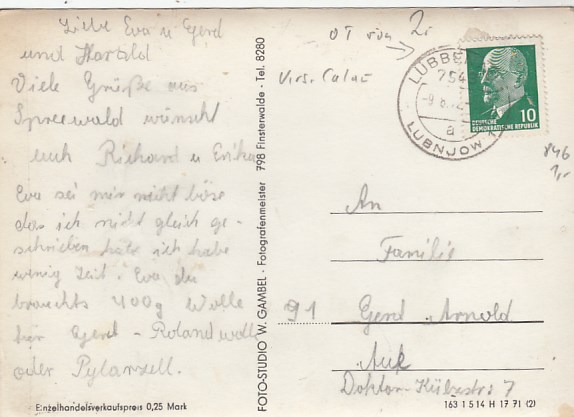 Liebe Eva u Gerd
und Harald
Viele Grüße aus
Spreewald wünscht
euch Richard u Erika
Eva sei mir nicht böse
das ich nicht gleich ge-
schrieben habe ich habe
wenig Zeit. Eva du
brauchts 400g Wolle
für Gerd - Roland
oder
Einzelhandelsverkaufspreis 0,25 Mark
FOTO-STUDIO W. GAMBEL · Fotografenmeister 798 Finsterwalde · Tel. 8280
OT von 2i
Krs. Calau
LÜBBEN
754
LUBNJOW
a
10
DEUTSCHE
DEMOKRATISCHE REPUBLIK
846
1,-
An
Familie
91 Gerd Arnold
Aue
7
163 1 5 14 H 17 71 (2)